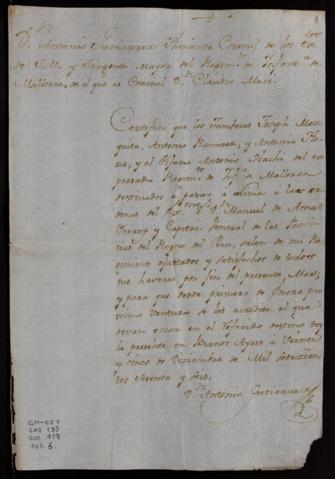 Dn. Antonio Gutierrez Theniente Coronel de los extos
de S.M. y Sargento Mayor del Regimto de Infanta de
Mallorca, de el que es Coronel Dn. Claudio Mace.
Certifico que los Tambores Joseph Mez
quita, Antonio Ramirez, y Antonio Flo
res, y el Pifano Antonio Llachi del ex
presado Regimto de Infa de Mallorca
destinados a pasar, a Lima á las or
denes del Exmo. Sor Dn. Manuel de Amat
Virrey y Capitan General de las Provin
cias del Reyno del Peru, salen de mi Re
gimiento ajustados y satisfechos de todos
sus haveres por fin del presente Mes,
y para que desde primero de Enero pro
ximo venturo se les acredite el que
devan gozar en el referido destino doy
la presente en Buenos Ayres á Veinte
y cinco de Diziembre de Mil Setezien
tos Setenta y
Dn. Antonio Gutierrez
GM-021
CAJ 133
DOC 117
Fol 6